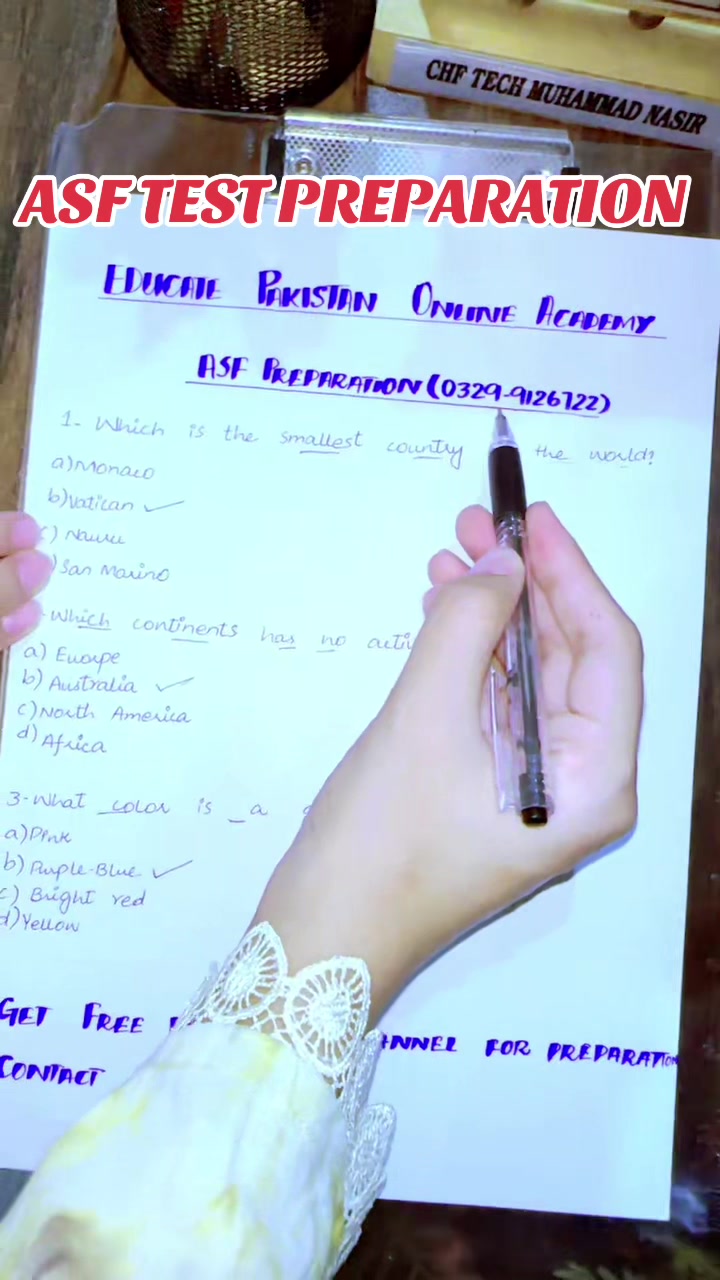 CHF TECH MUHAMMAD NASIR
ASF TEST PREPARATION
EDUCATE PAKISTAN ONLINE ACADEMY
ASF PREPARATION (0329-9126722)
1- Which is the smallest country the world?
a) Monaco
b) Vatican ✓
c) Nauru
) San Marino
-Which continents has no activ
a) Europe
b) Australia ✓
c) North America
d) Africa
3- What color is a
a) Pink
b) Purple-Blue ✓
c) Bright red
d) Yellow
GET FREE NNEL FOR PREPARATION
CONTACT